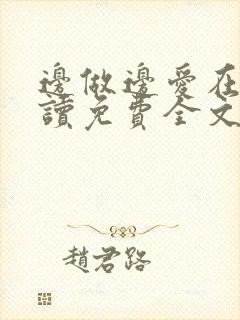 邊做邊愛在
讀免費全文
趙君路